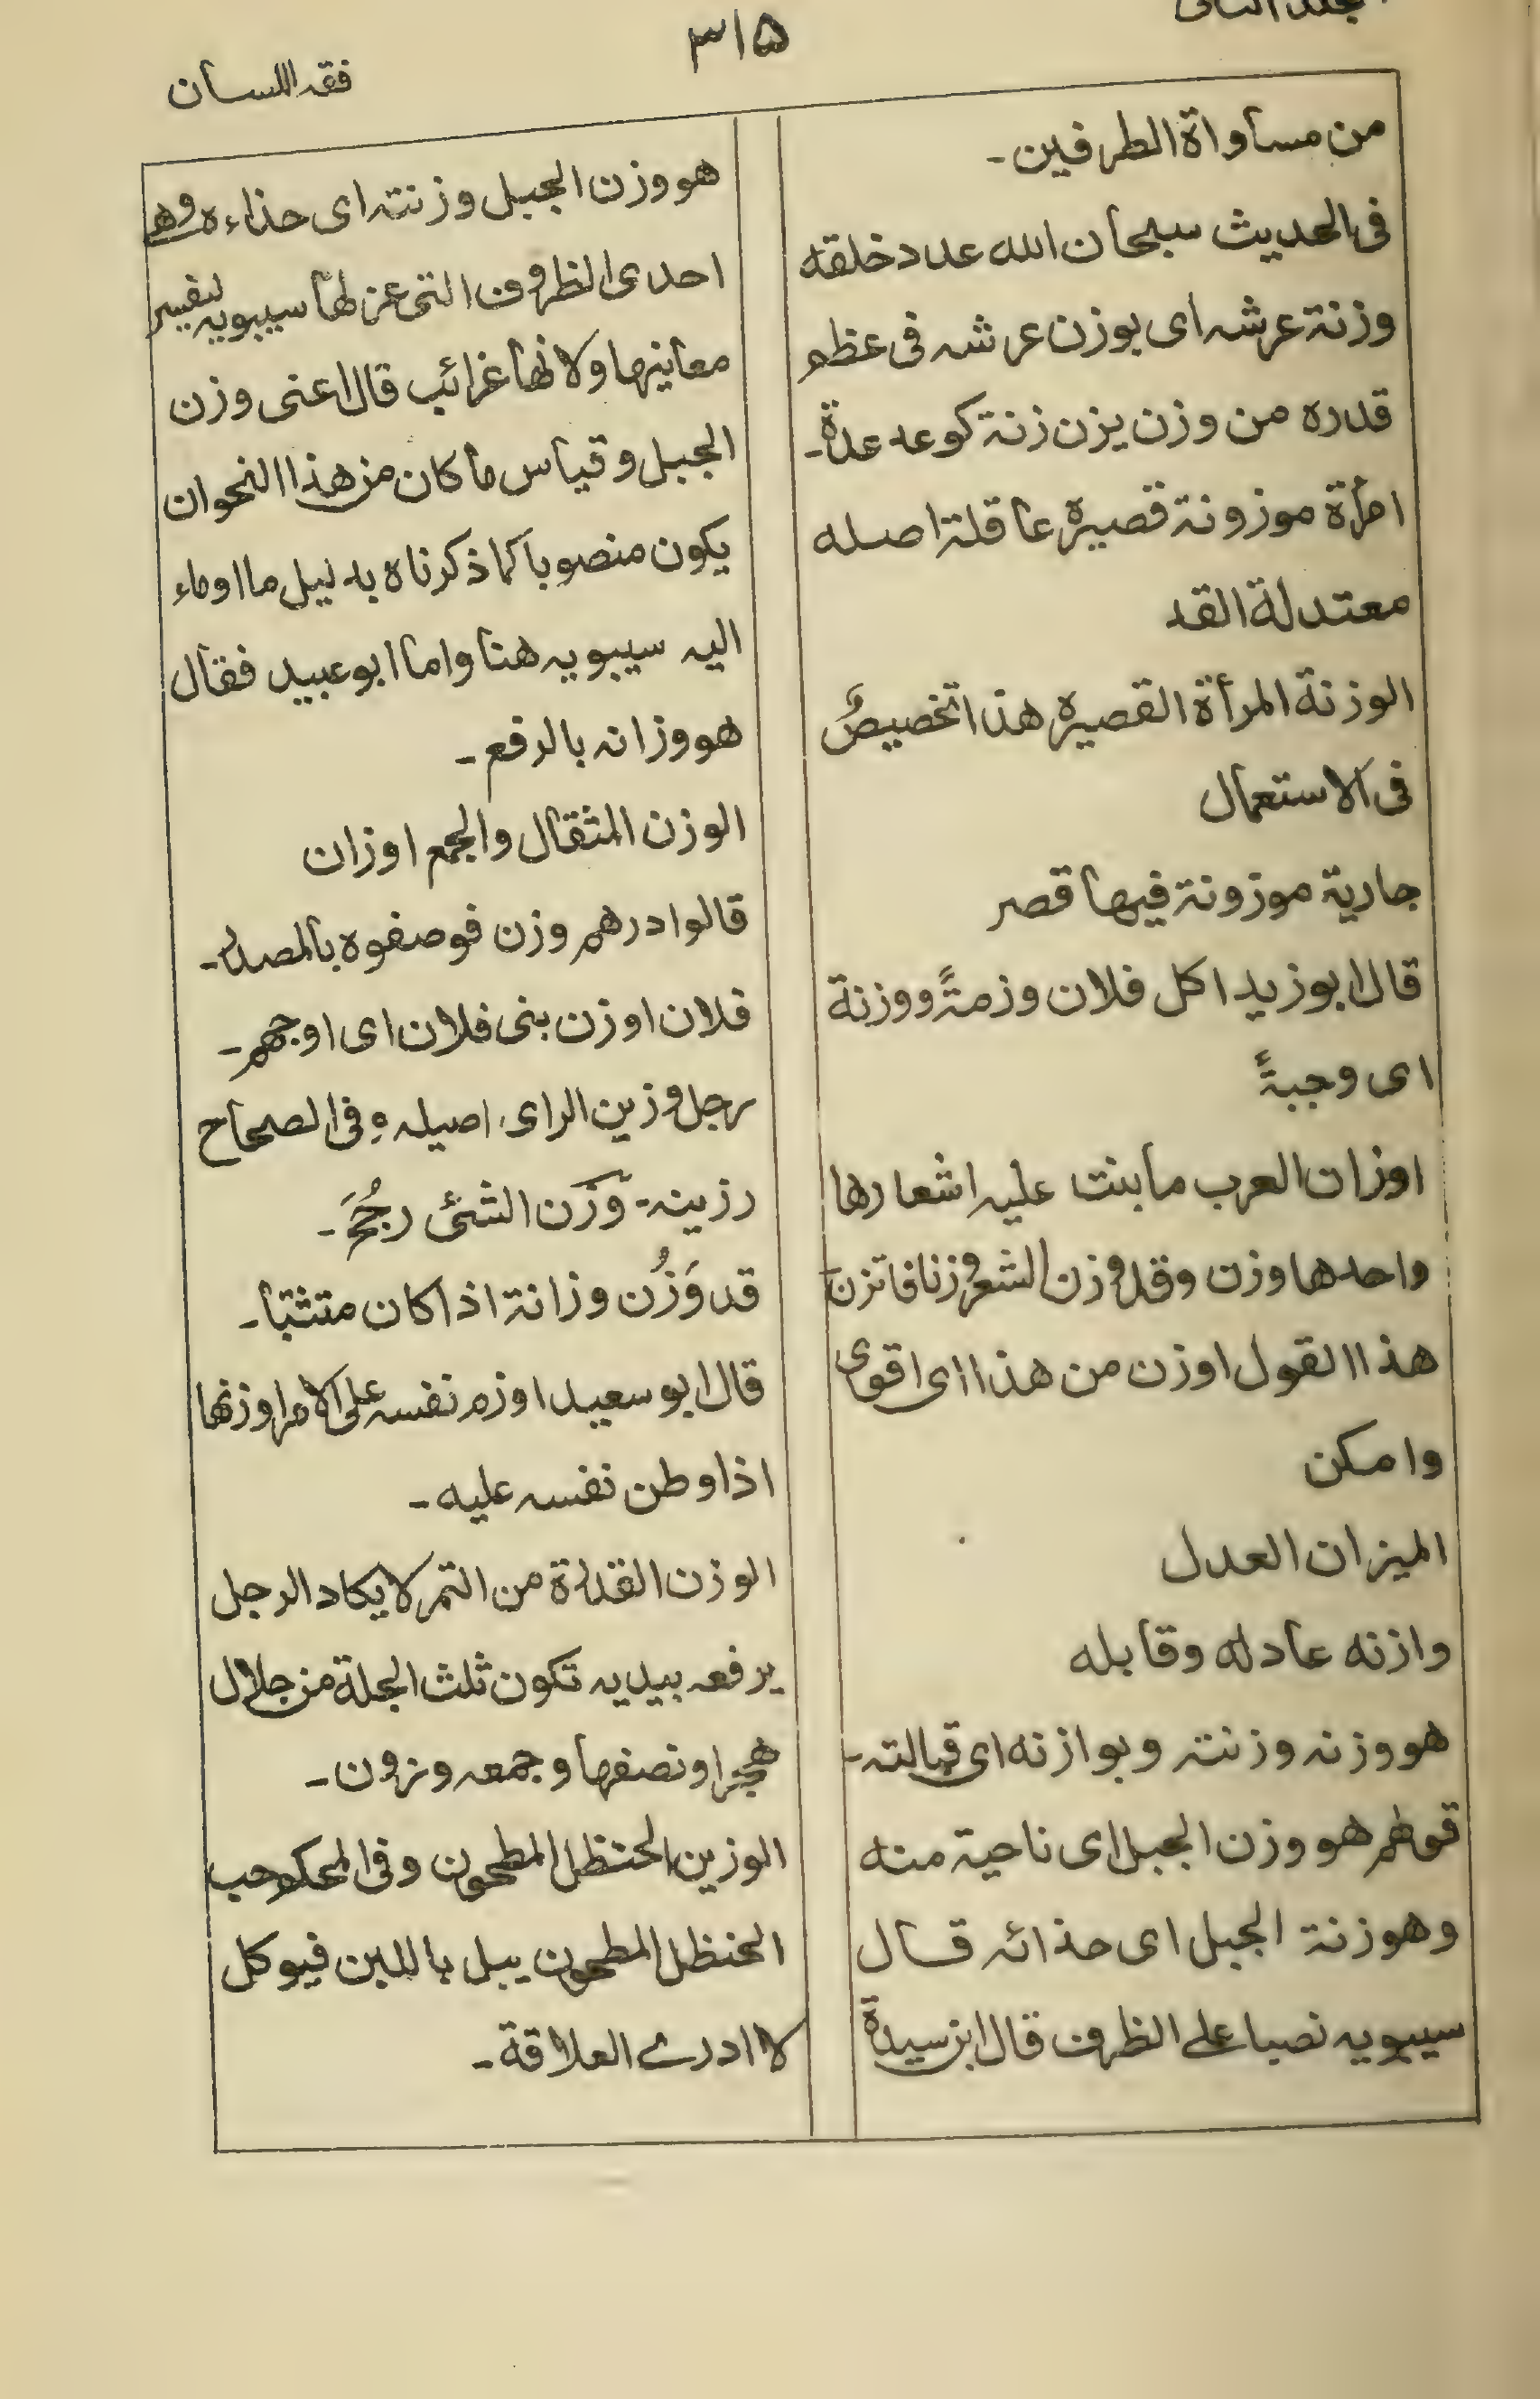 ۳۱۵
فقہ اللسان
من مساواة الطرفین۔
فی الحدیث سبحان الله عدد خلقه
وزنة عرشہ ای بوزن عرشہ فی عظم
قدره من وزن یزن زنة کوعد عدة۔
امرأة موزونة قصیرة عاقلة اصله
معتدلة القد
الوزنة المرأة القصیرة هذا تخصیصٌ
فی الاستعمال
جاریة موزونة فیها قصر
قال ابوزید اکل فلان وزمةً ووزنة
ای وجبةً
اوزان العرب ما بنت علیہ اشعارها
واحدها وزن وقد وزن الشعر وزنا فاتزن
هذا القول اوزن من هذا ای اقوی
وامکن
المیزان العدل
وازنه عادله وقابله
هو وزنہ وزنتہ وبوازنه ای قبالتہ۔
قولهم هو وزن الجبل ای ناحیة منه
وهو زنة الجبل ای حذائہ قال
سیبویہ نصبا علی الظرف قال ابن سیدة
هو وزن الجبل وزنتہ ای حذاءه وهی
احدی الظروف التی عزلها سیبویہ لیفسر
معانیها ولانها غرائب قال اعنی وزن
الجبل وقیاس ما کان من هذا النحو ان
یکون منصوبا کما ذکرناه بدلیل ما اوماء
الیہ سیبویہ هنا واما ابوعبید فقال
هو وزانہ بالرفع۔
الوزن المثقال والجمع اوزان
قالوا درهم وزن فوصفوه بالمصدر۔
فلان اوزن بنی فلان ای اوجههم۔
رجل وزین الرای اصیلہ وفی الصحاح
رزینہ۔ وَزَن الشئی رجُحَ۔
قد وَزُن وزانة اذا کان متثبتا۔
قال ابو سعید اوزم نفسہ علی الامر اوزنها
اذا وطن نفسہ علیه۔
الوزن القدرة من التمر لا یکاد الرجل
یرفعہ بیدیہ تکون ثلث الجلة من جلال
هجر او نصفها وجمعہ وزون۔
الوزین الحنظل المطحون وفی المحکم حب
الحنظل المطحون یبل باللبن فیوکل
لا ادری العلاقة۔